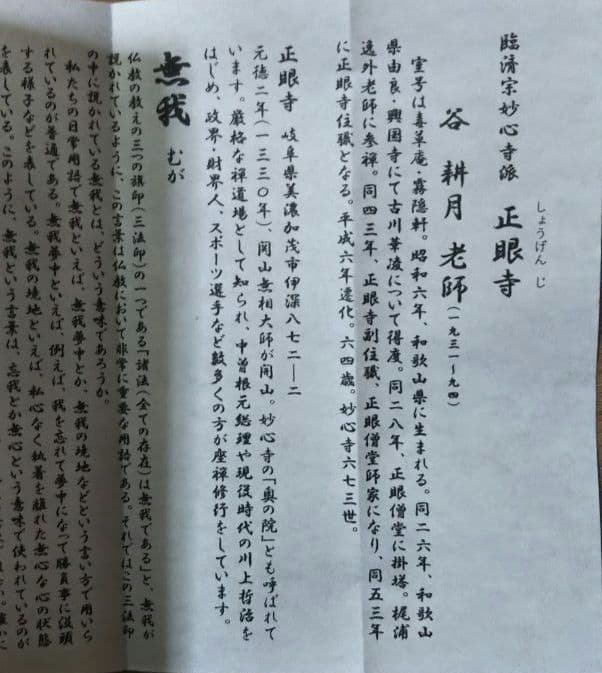 臨済宗妙心寺派 正眼寺
しょうげん じ
谷 耕月 老師(一九三一~九四)
室号は毒草庵・霧隠軒。昭和六年、和歌山県に生まれる。同二六年、和歌山
県由良・興国寺にて古川華凌について得度。同二八年、正眼僧堂に掛塔。梶浦
逸外老師に参禅。同四三年、正眼寺副住職、正眼僧堂師家になり、同五三年
に正眼寺住職となる。平成六年遷化。六四歳。妙心寺六七三世。
正眼寺 岐阜県美濃加茂市伊深八七二―二
元徳二年(一三三〇年)、関山無相大師が開山。妙心寺の「奥の院」とも呼ばれて
います。厳格な禅道場として知られ、中曽根元総理や現役時代の川上哲治を
はじめ、政界・財界人、スポーツ選手など数多くの方が座禅修行をしています。
無我 むが
仏教の教えの三つの旗印(三法印)の一つである「諸法(全ての存在)は無我である」と、無我が
説かれているように、この言葉は仏教において非常に重要な用語である。それではこの三法印
の中に説かれている無我とは、どういう意味であろうか。
私たちの日常用語で無我といえば、無我夢中とか、無我の境地などという言い方で用いら
れているのが普通である。無我夢中といえば、例えば、我を忘れて夢中になって勝負事に没頭
する様子などを表している。無我の境地といえば、私心なく執着を離れた無心な心の状態
を表している。このように、無我という言葉は、忘我とか無心という意味で使われているのが